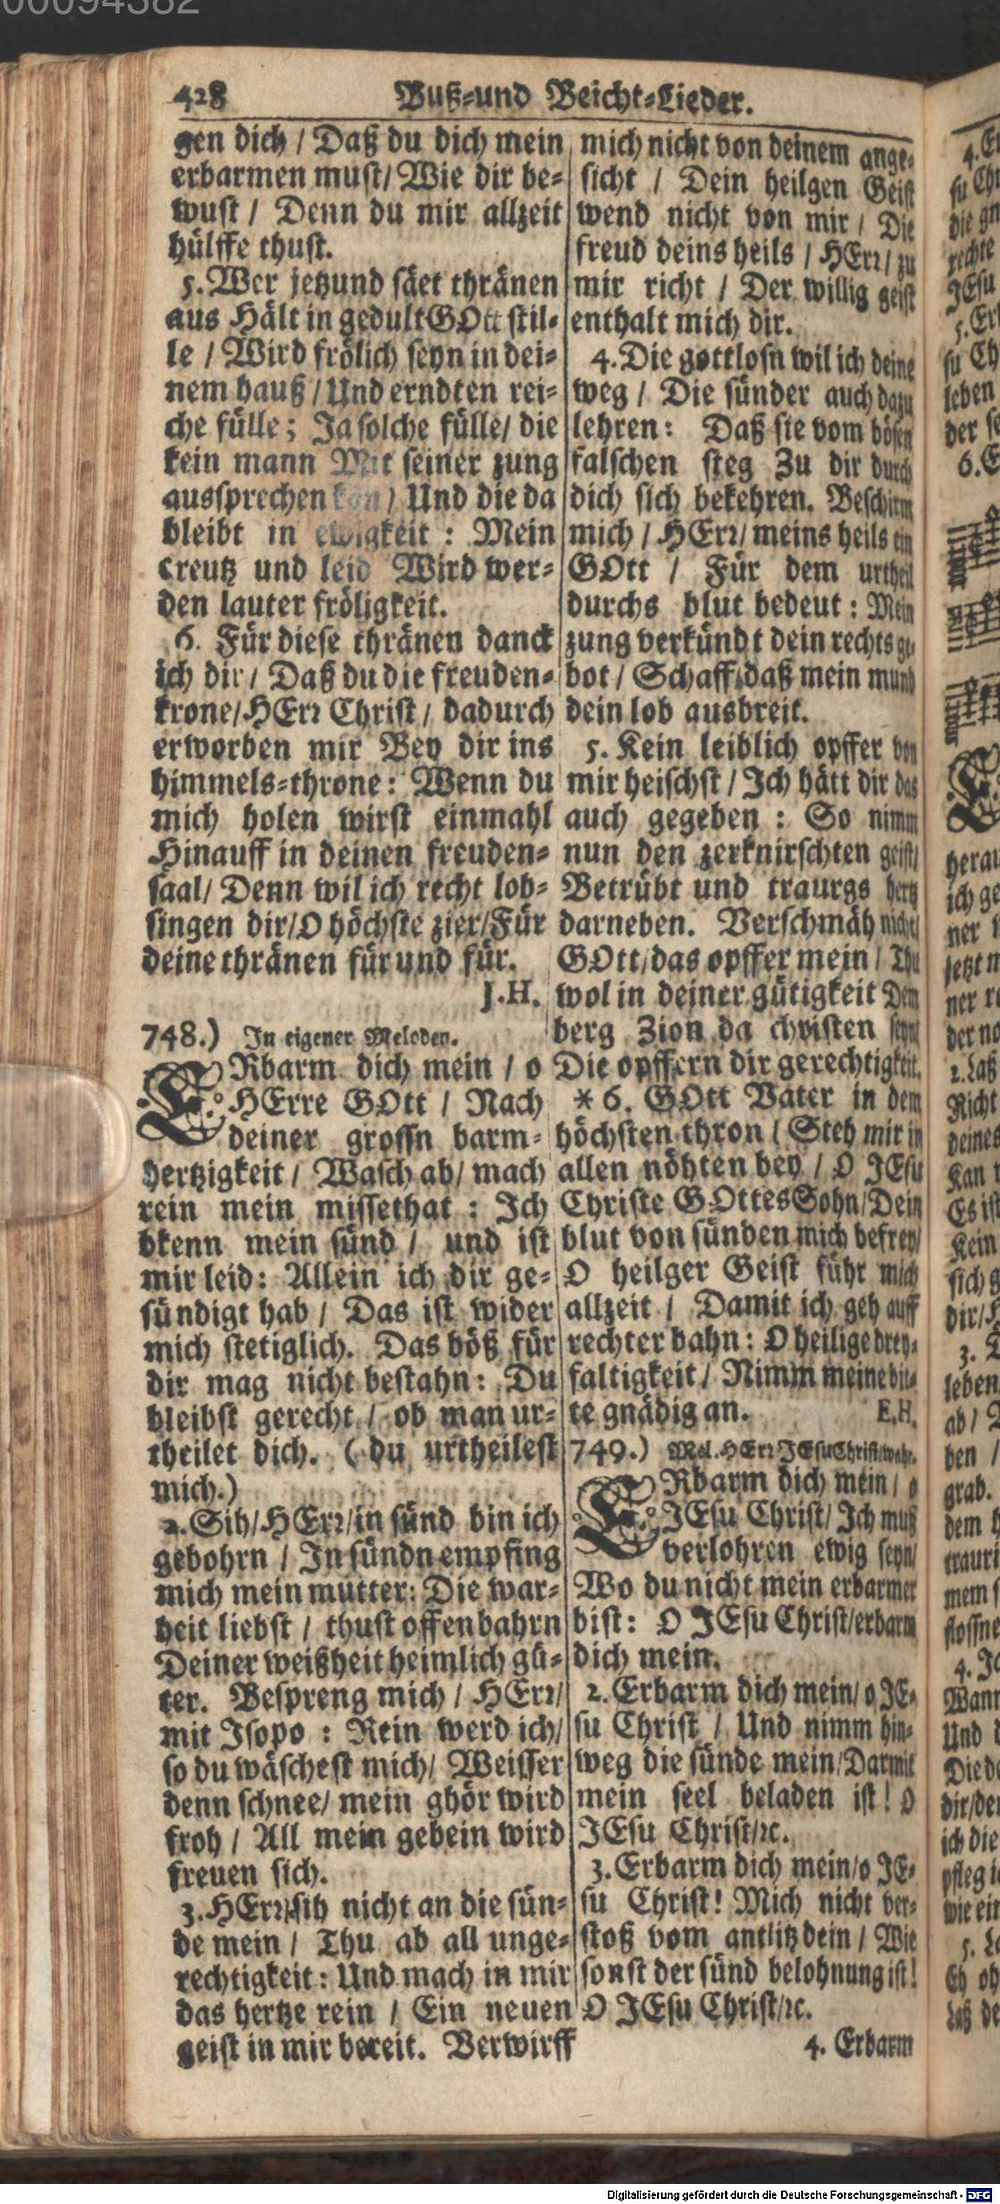 428 Buß-und Beicht-Lieder.
gen dich / Daß du dich mein
erbarmen must/ Wie dir be-
wust / Denn du mir allzeit
hülffe thust.
5. Wer jetzund säet thränen
aus Hält in gedult GOtt stil-
le / Wird frölich seyn in dei-
nem hauß / Und erndten rei-
che fülle; Ja solche fülle/ die
kein mann Mit seiner zung
aussprechen kan / Und die da
bleibt in ewigkeit : Mein
creutz und leid Wird wer-
den lauter fröligkeit.
6. Für diese thränen danck
ich dir / Daß du die freuden-
krone/HErr Christ / dadurch
erworben mir Bey dir ins
himmels-throne: Wenn du
mich holen wirst einmahl
Hinauff in deinen freuden-
saal/ Denn wil ich recht lob-
singen dir/O höchste zier/Für
deine thränen für und für.
J.H.
748.) In eigener Meloden.
ERbarm dich mein / o
HErre GOtt / Nach
deiner grossn barm-
hertzigkeit / Wasch ab/ mach
rein mein missethat : Ich
bkenn mein sünd / und ist
mir leid: Allein ich dir ge-
sündigt hab / Das ist wider
mich stetiglich. Das böß für
dir mag nicht bestahn: Du
bleibst gerecht / ob man ur-
theilet dich. (du urtheilest
mich.)
2. Sih/HErr/in sünd bin ich
gebohrn / In sündn empfing
mich mein mutter: Die war-
heit liebst / thust offenbahrn
Deiner weißheit heimlich gü-
ter. Bespreng mich / HErr/
mit Isopo : Rein werd ich/
so du wäschest mich/ Weisser
denn schnee/ mein ghör wird
froh / All mein gebein wird
freuen sich.
3. HErr/sih nicht an die sün-
de mein / Thu ab all unge-
rechtigkeit: Und mach in mir
das hertze rein / Ein neuen
geist in mir bereit. Verwirff
mich nicht von deinem ange-
sicht / Dein heilgen Geist
wend nicht von mir / Die
freud deins heils / HErr/ zu
mir richt / Der willig geist
enthalt mich dir.
4. Die gottlosn wil ich deine
weg / Die sünder auch dazu
lehren: Daß sie vom bösen
falschen steg Zu dir durch
dich sich bekehren. Beschirm
mich / HErr/ meins heils ein
GOtt / Für dem urtheil
durchs blut bedeut : Mein
zung verkündt dein rechts ge-
bot / Schaff/daß mein mund
dein lob ausbreit.
5. Kein leiblich opffer von
mir heischst / Ich hätt dir das
auch gegeben : So nimm
nun den zerknirschten geist/
Betrübt und traurgs hertz
darneben. Verschmäh nicht/
GOtt/das opffer mein / Thu
wol in deiner gütigkeit Dem
berg Zion da christen seynd
Die opffern dir gerechtigkeit.
* 6. GOtt Vater in dem
höchsten thron / Steh mir in
allen nöhten bey / O JEsu
Christe GOttes Sohn/Dein
blut von sünden mich befrey/
O heilger Geist führ mich
allzeit / Damit ich geh auff
rechter bahn: O heilige drey-
faltigkeit / Nimm meine bit-
te gnädig an. E.H.
749.) Mel. HErr JEsu Christ/wahr.
ERbarm dich mein / o
JEsu Christ/ Ich muß
verlohren ewig seyn/
Wo du nicht mein erbarmer
bist: O JEsu Christ/erbarm
dich mein.
2. Erbarm dich mein/ o JE-
su Christ / Und nimm hin-
weg die sünde mein/Darmit
mein seel beladen ist! O
JEsu Christ/ꝛc.
3. Erbarm dich mein/o JE-
su Christ! Mich nicht ver-
stoß vom antlitz dein / Wie
sonst der sünd belohnung ist!
O JEsu Christ/ꝛc.
4. Erbarm
Digitalisierung gefördert durch die Deutsche Forschungsgemeinschaft - DFG